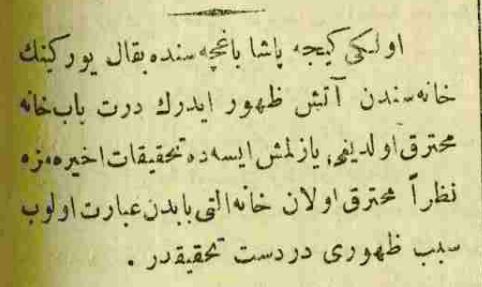 اولكى كيجه پاشا باغچه سنده بقال يوركينك
خانه سندن آتش ظهور ايدرك درت باب خانه
محترق اولديغى يازلمش ايسه ده تحقيقات اخيره مزه
نظراً محترق اولان خانه التى بابدن عبارت اولوب
سبب ظهورى دردست تحقيقدر .